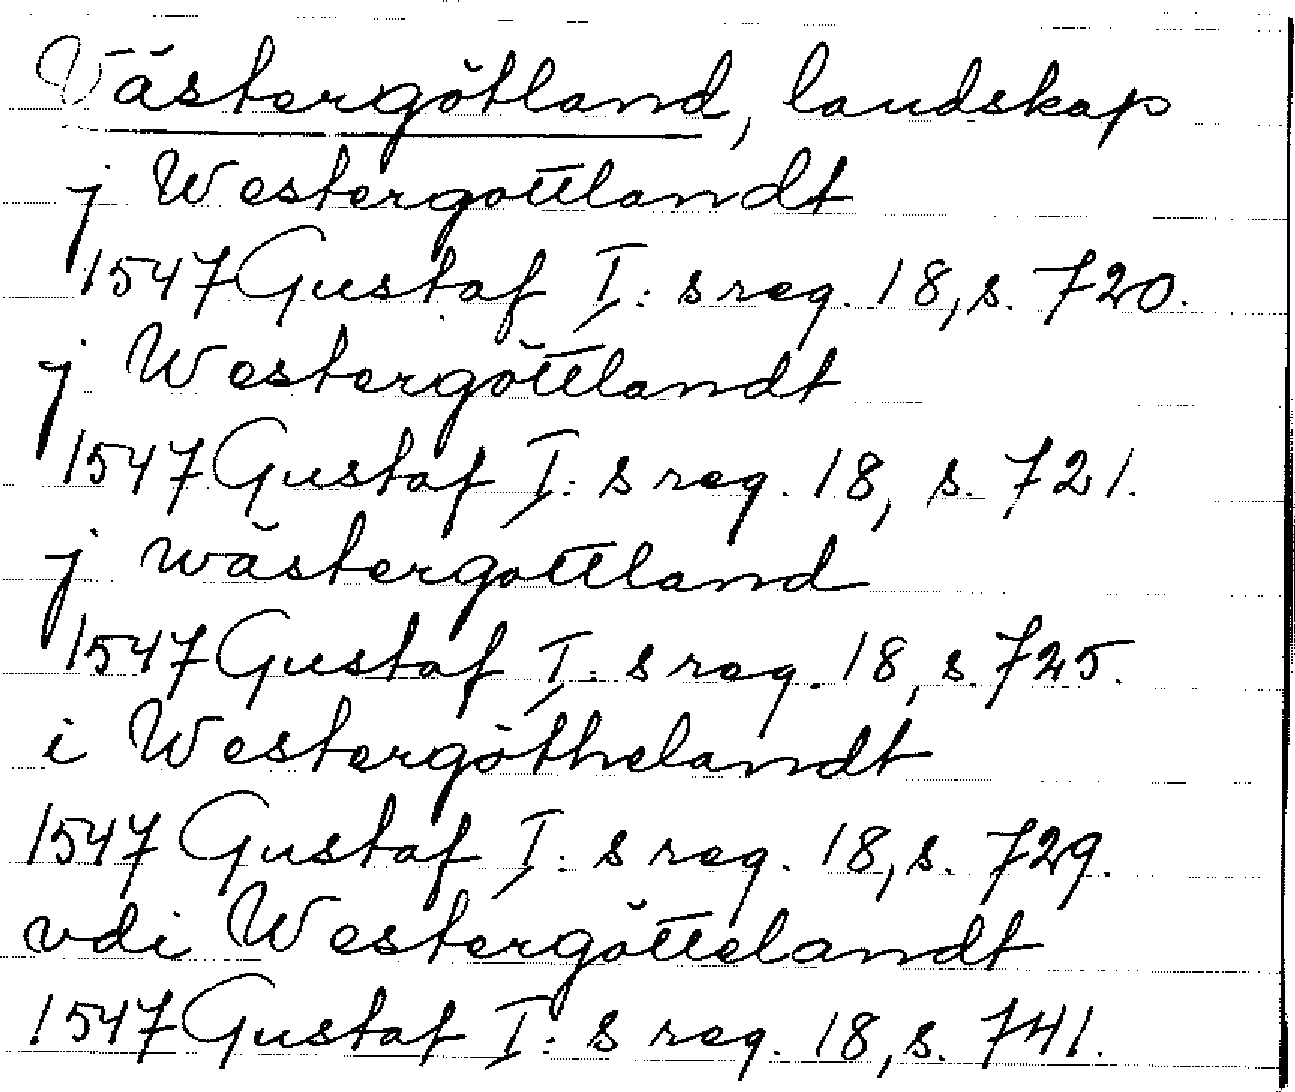 Västergötland, landskap
j Westergottlandt
1547 Gustaf I: s reg. 18, s. 720.
j Westergöttlandt
1547 Gustaf I: s reg. 18, s. 721.
j wästergottland
1547 Gustaf I: s reg. 18, s. 725.
i Westergöthelandt
1547 Gustaf I: s reg. 18, s. 729.
vdi Westergöttelandt
1547 Gustaf I: s reg. 18, s. 741.